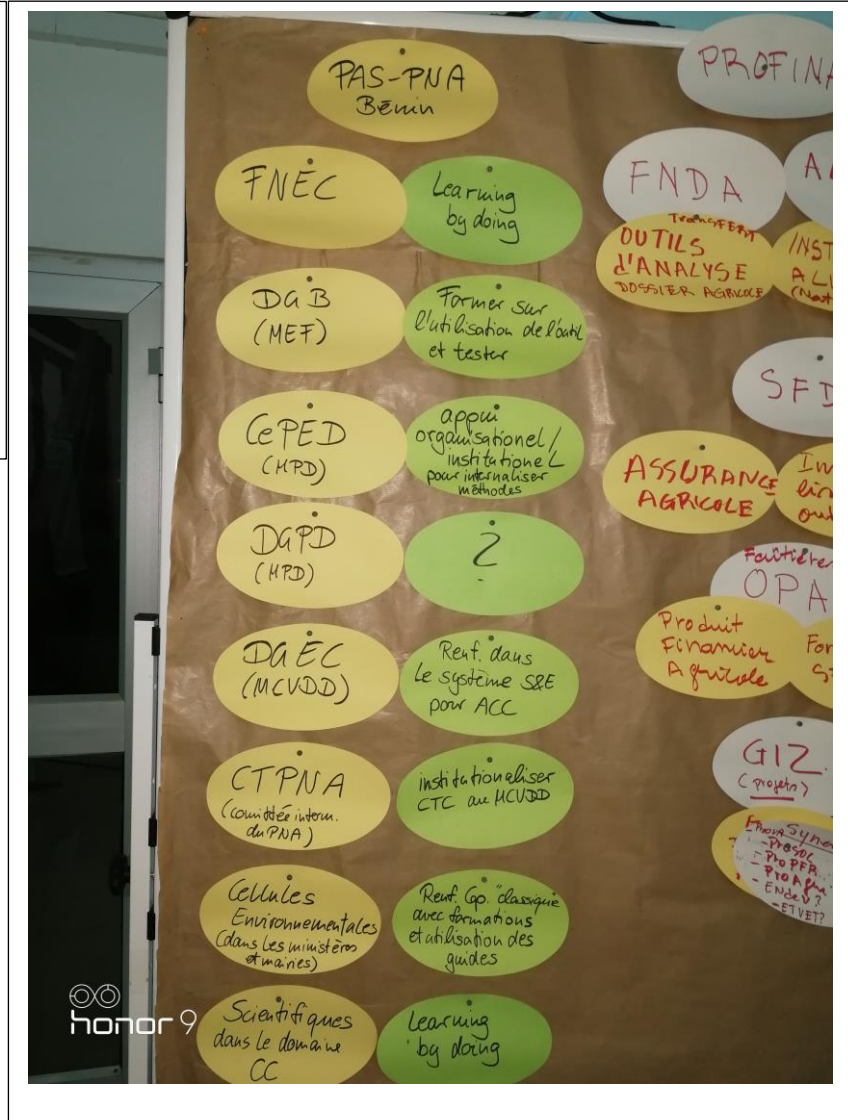 PAS-PNA
Bénin
FNEC
Learning
by doing
DGB
(MEF)
Former sur
l'utilisation de l'outil
et tester
CePED
(MPD)
appui
organisationel/
institutionel
pour internaliser
méthodes
DGPD
(MPD)
?
DGEC
(MCVDD)
Renf. dans
le système S&E
pour ACC
CTPNA
(comittée interm.
du PNA)
institutionaliser
CTC au MCVDD
Cellules
Environnementales
(dans les ministères
et mairies)
Renf. Cap. "classique
avec formations
et utilisation des
guides
Scientifiques
dans le domaine
CC
Learning
by doing
PROFINA
FNDA
A
Transfert
OUTILS
d'ANALYSE
DOSSIER AGRICOLE
INST
A L
SFD
ASSURANCE
AGRICOLE
Faîtière
OPA
Produit
Financier
Agricole
For
GIZ
(projets)
- ProSOL
- ProPFR
- ProAgri
- EnDev?
- ETVET?
honor 9